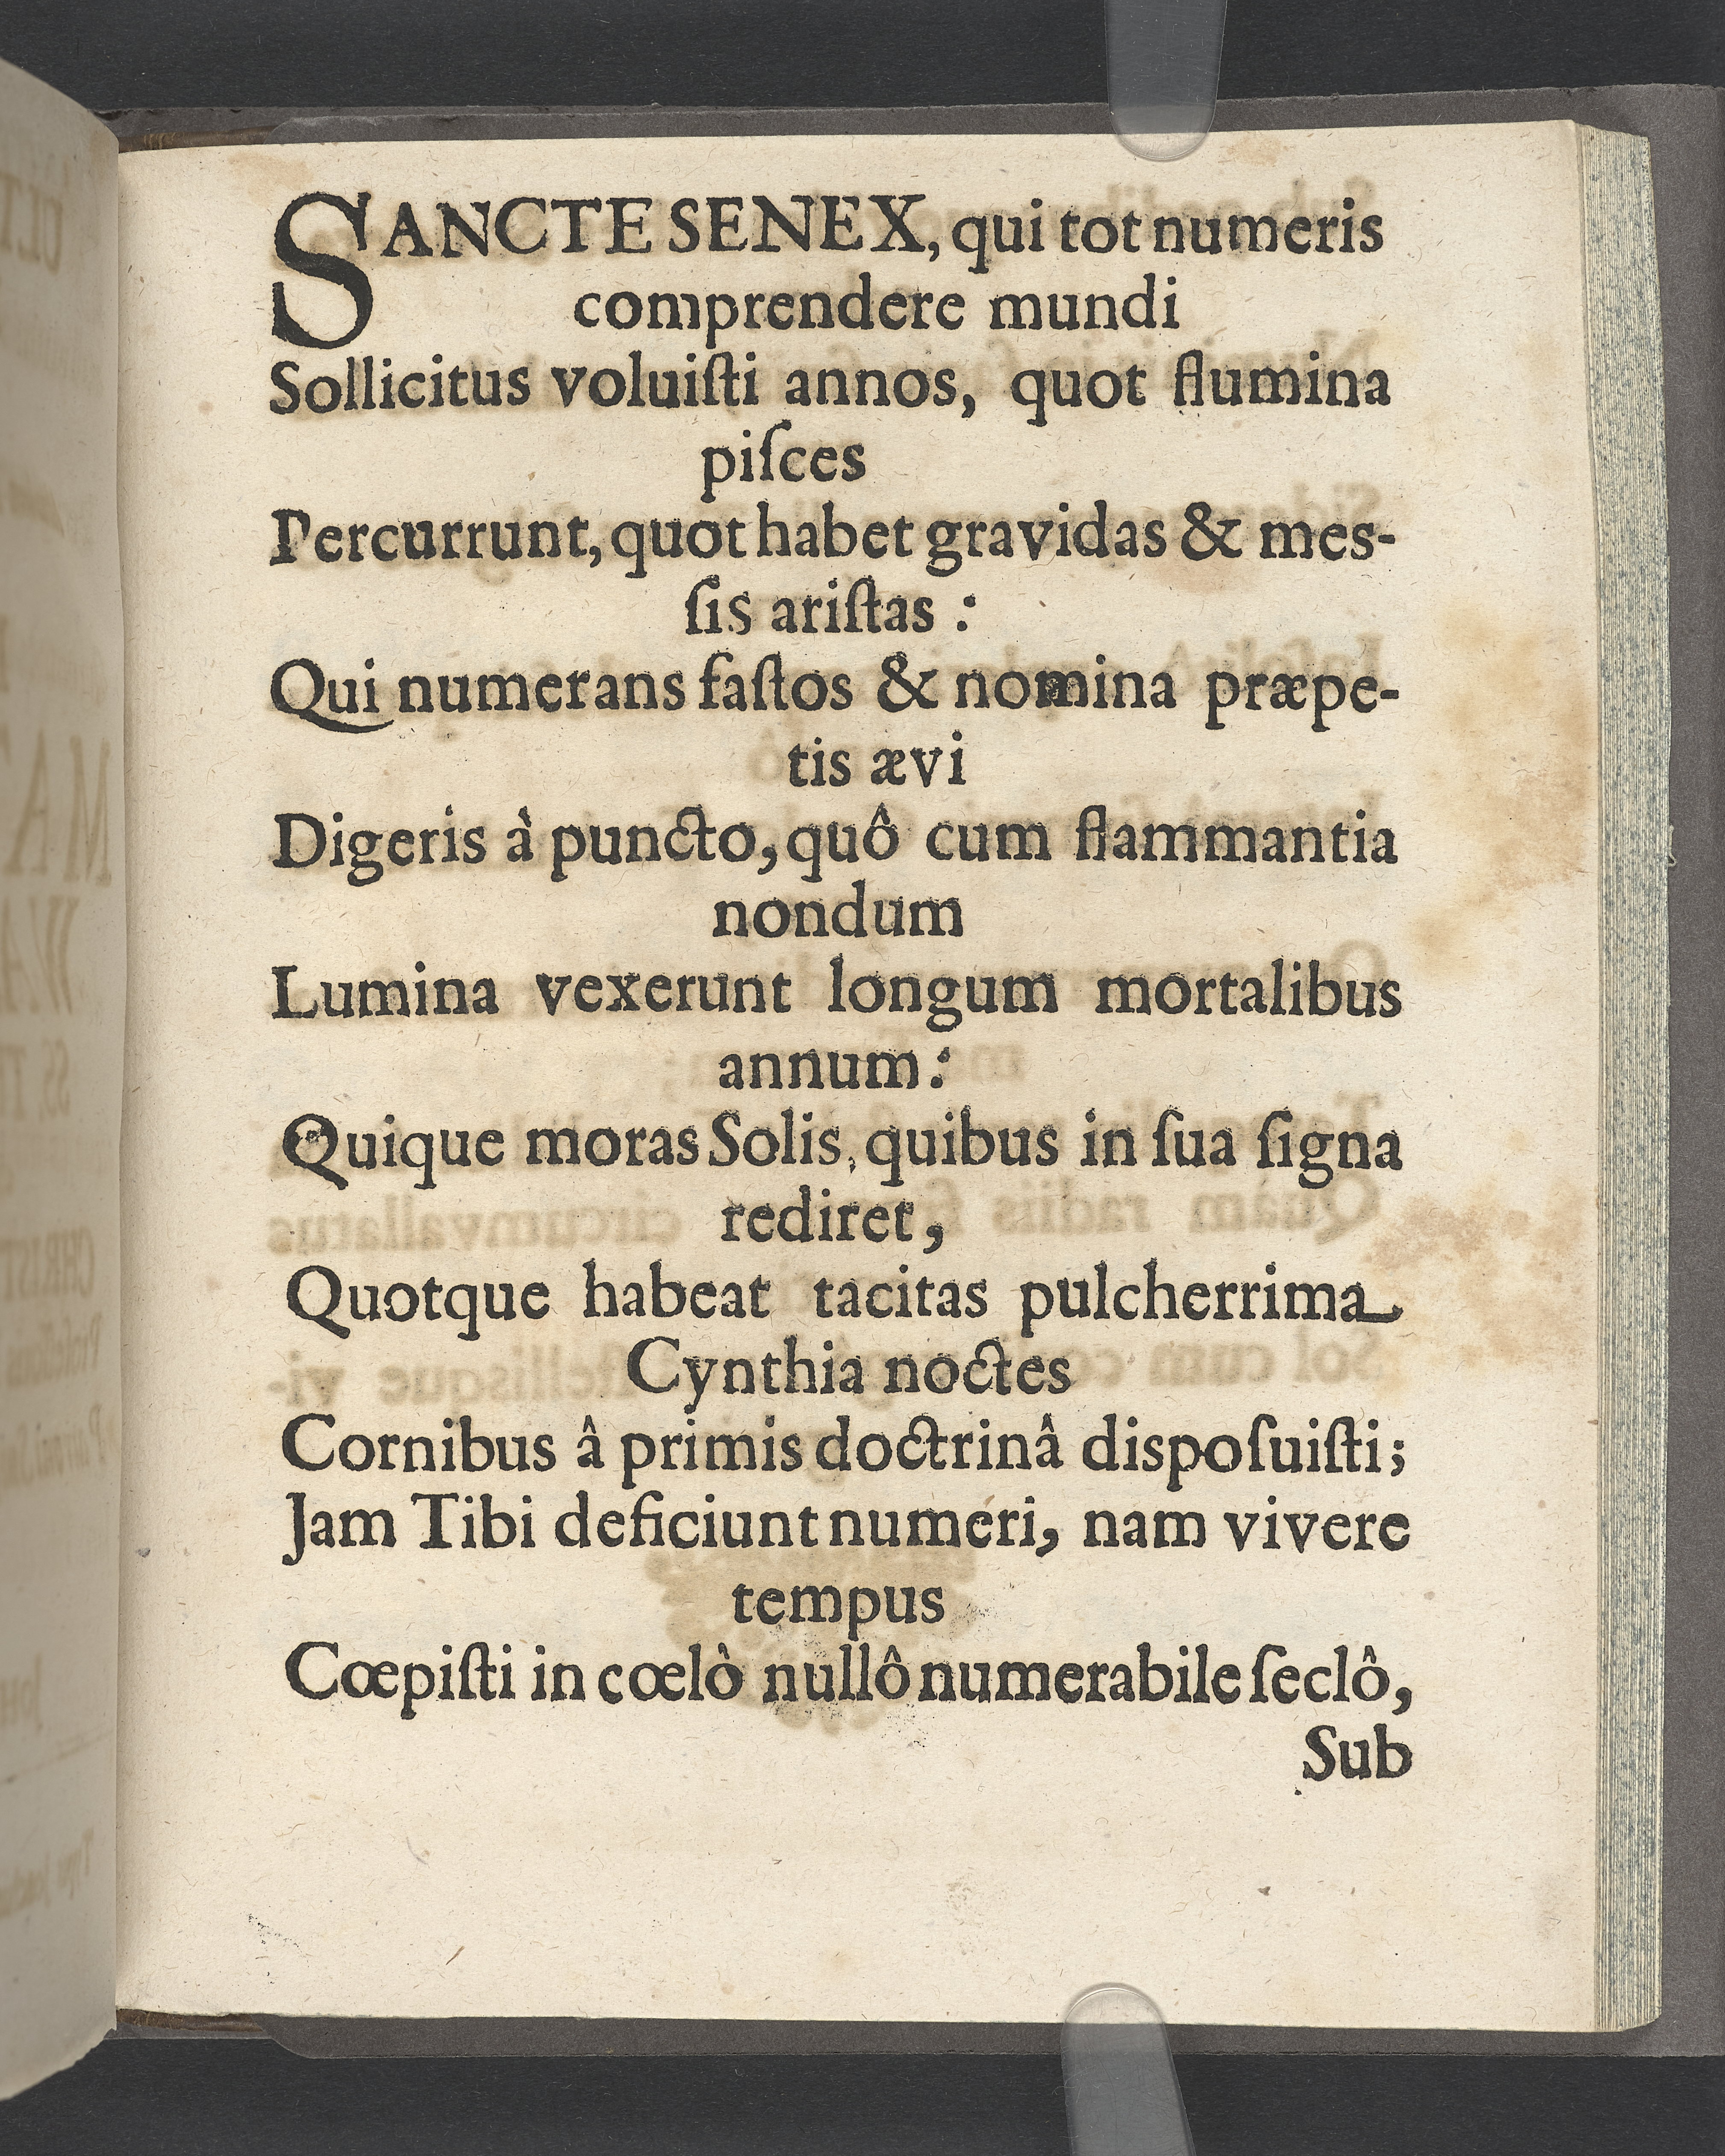 SANCTE SENEX, qui tot numeris
comprendere mundi
Sollicitus voluiſti annos, quot flumina
piſces
Percurrunt, quot habet gravidas & mes-
ſis ariſtas :
Qui numerans faſtos & nomina præpe-
tis ævi
Digeris à puncto, quô cum flammantia
nondum
Lumina vexerunt longum mortalibus
annum:
Quique moras Solis, quibus in ſua ſigna
rediret,
Quotque habeat tacitas pulcherrima
Cynthia noctes
Cornibus â primis doctrinâ dispoſuiſti;
Jam Tibi deficiunt numeri, nam vivere
tempus
Cœpiſti in cœlò nullô numerabile ſeclô,
Sub